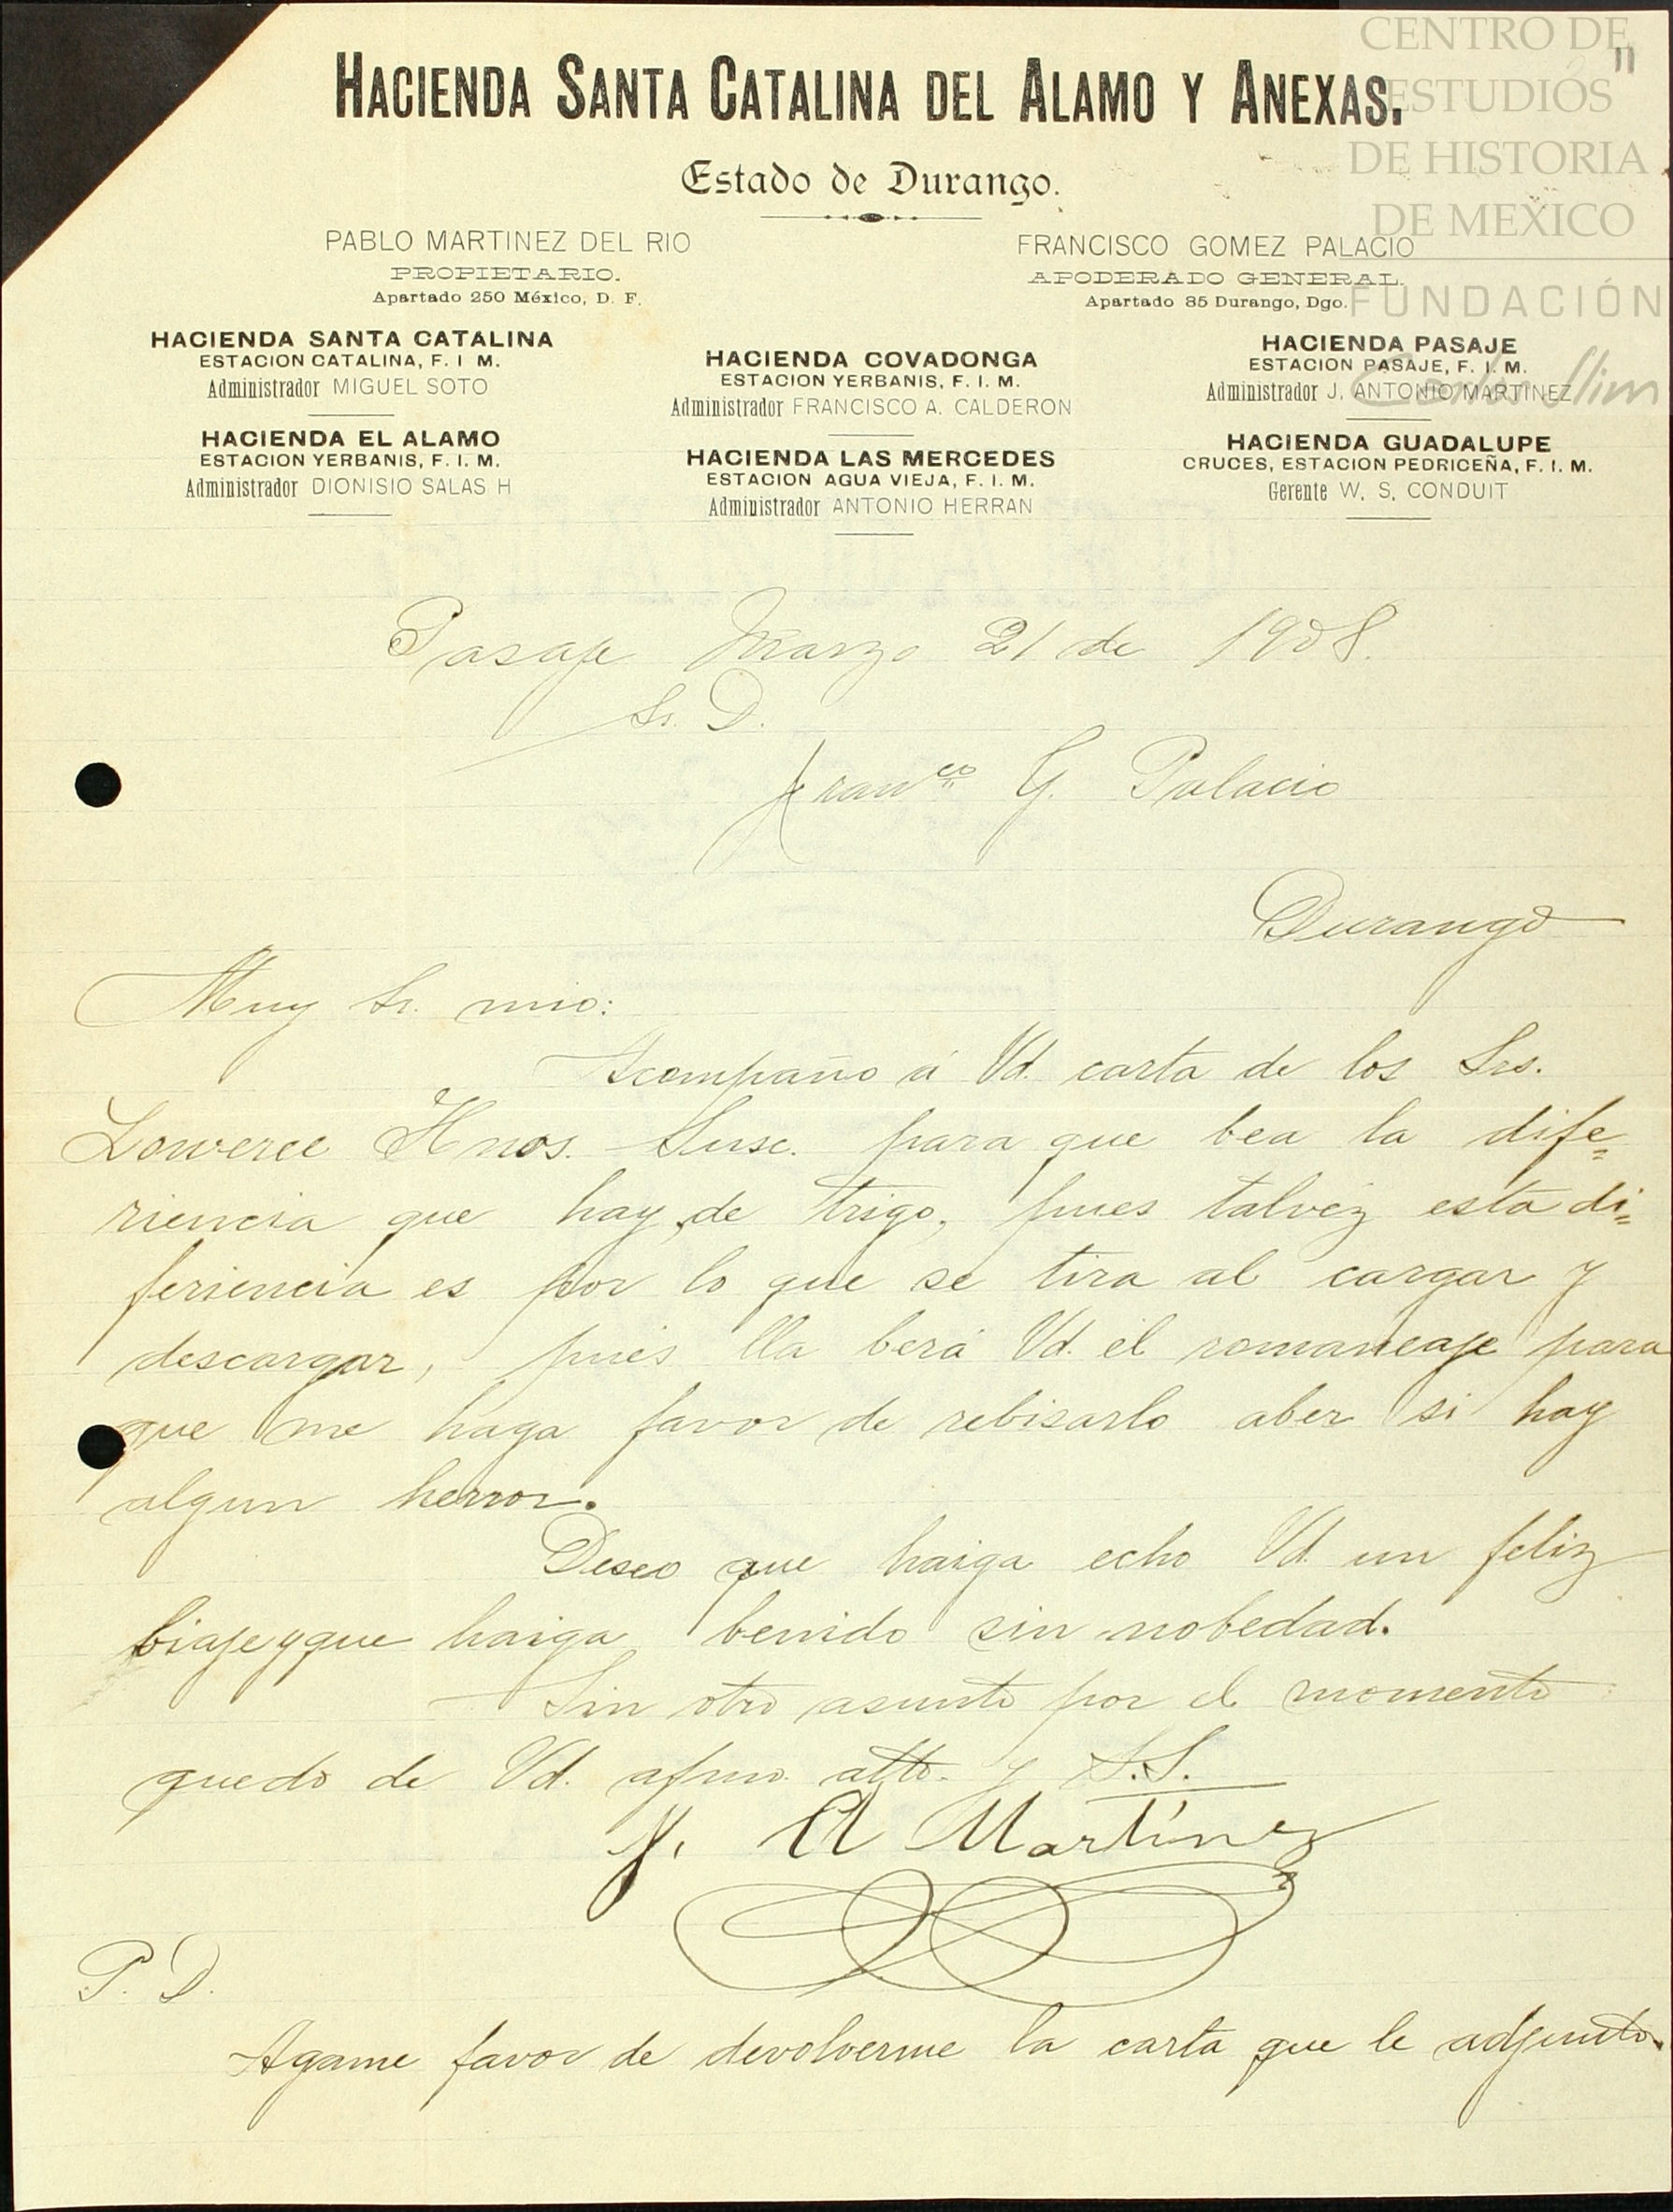 CENTRO DE
ESTUDIOS
DE HISTORIA
DE MEXICO
FUNDACIÓN
Carlos Slim
11
HACIENDA SANTA CATALINA DEL ALAMO Y ANEXAS.
Estado de Durango.
PABLO MARTINEZ DEL RIO
PROPIETARIO.
Apartado 250 México, D. F.
FRANCISCO GOMEZ PALACIO
APODERADO GENERAL.
Apartado 85 Durango, Dgo.
HACIENDA SANTA CATALINA
ESTACION CATALINA, F. I M.
Administrador MIGUEL SOTO
HACIENDA EL ALAMO
ESTACION YERBANIS, F. I. M.
Administrador DIONISIO SALAS H
HACIENDA COVADONGA
ESTACION YERBANIS, F. I. M.
Administrador FRANCISCO A. CALDERON
HACIENDA LAS MERCEDES
ESTACION AGUA VIEJA, F. I. M.
Administrador ANTONIO HERRAN
HACIENDA PASAJE
ESTACION PASAJE, F. I. M.
Administrador J. ANTONIO MARTINEZ
HACIENDA GUADALUPE
CRUCES, ESTACION PEDRICEÑA, F. I. M.
Gerente W. S. CONDUIT
Pasaje Marzo 21 de 1908.
Sr. D.
Franco G. Palacio
Durango
Muy Sr. mio:
Acompaño á Vd. carta de los Srs.
Loweree Hnos. Susc. para que bea la dife=
riencia que hay de trigo, pues talvéz esta di=
feriencia es por lo que se tira al cargar y
descargar, pués lla berá Vd. él romaneaje para
que me haga favor de rebisarlo aber si hay
algun herror.
Deseo que haiga echo Vd. un feliz
biaje y que haiga benido sin nobedad.
Sin otro asunto por el momento
quedo de Vd. afmo. atto. y S.S.
J. A Martínez
P. D.
Agame favor de devolverme la carta que le adjunto.